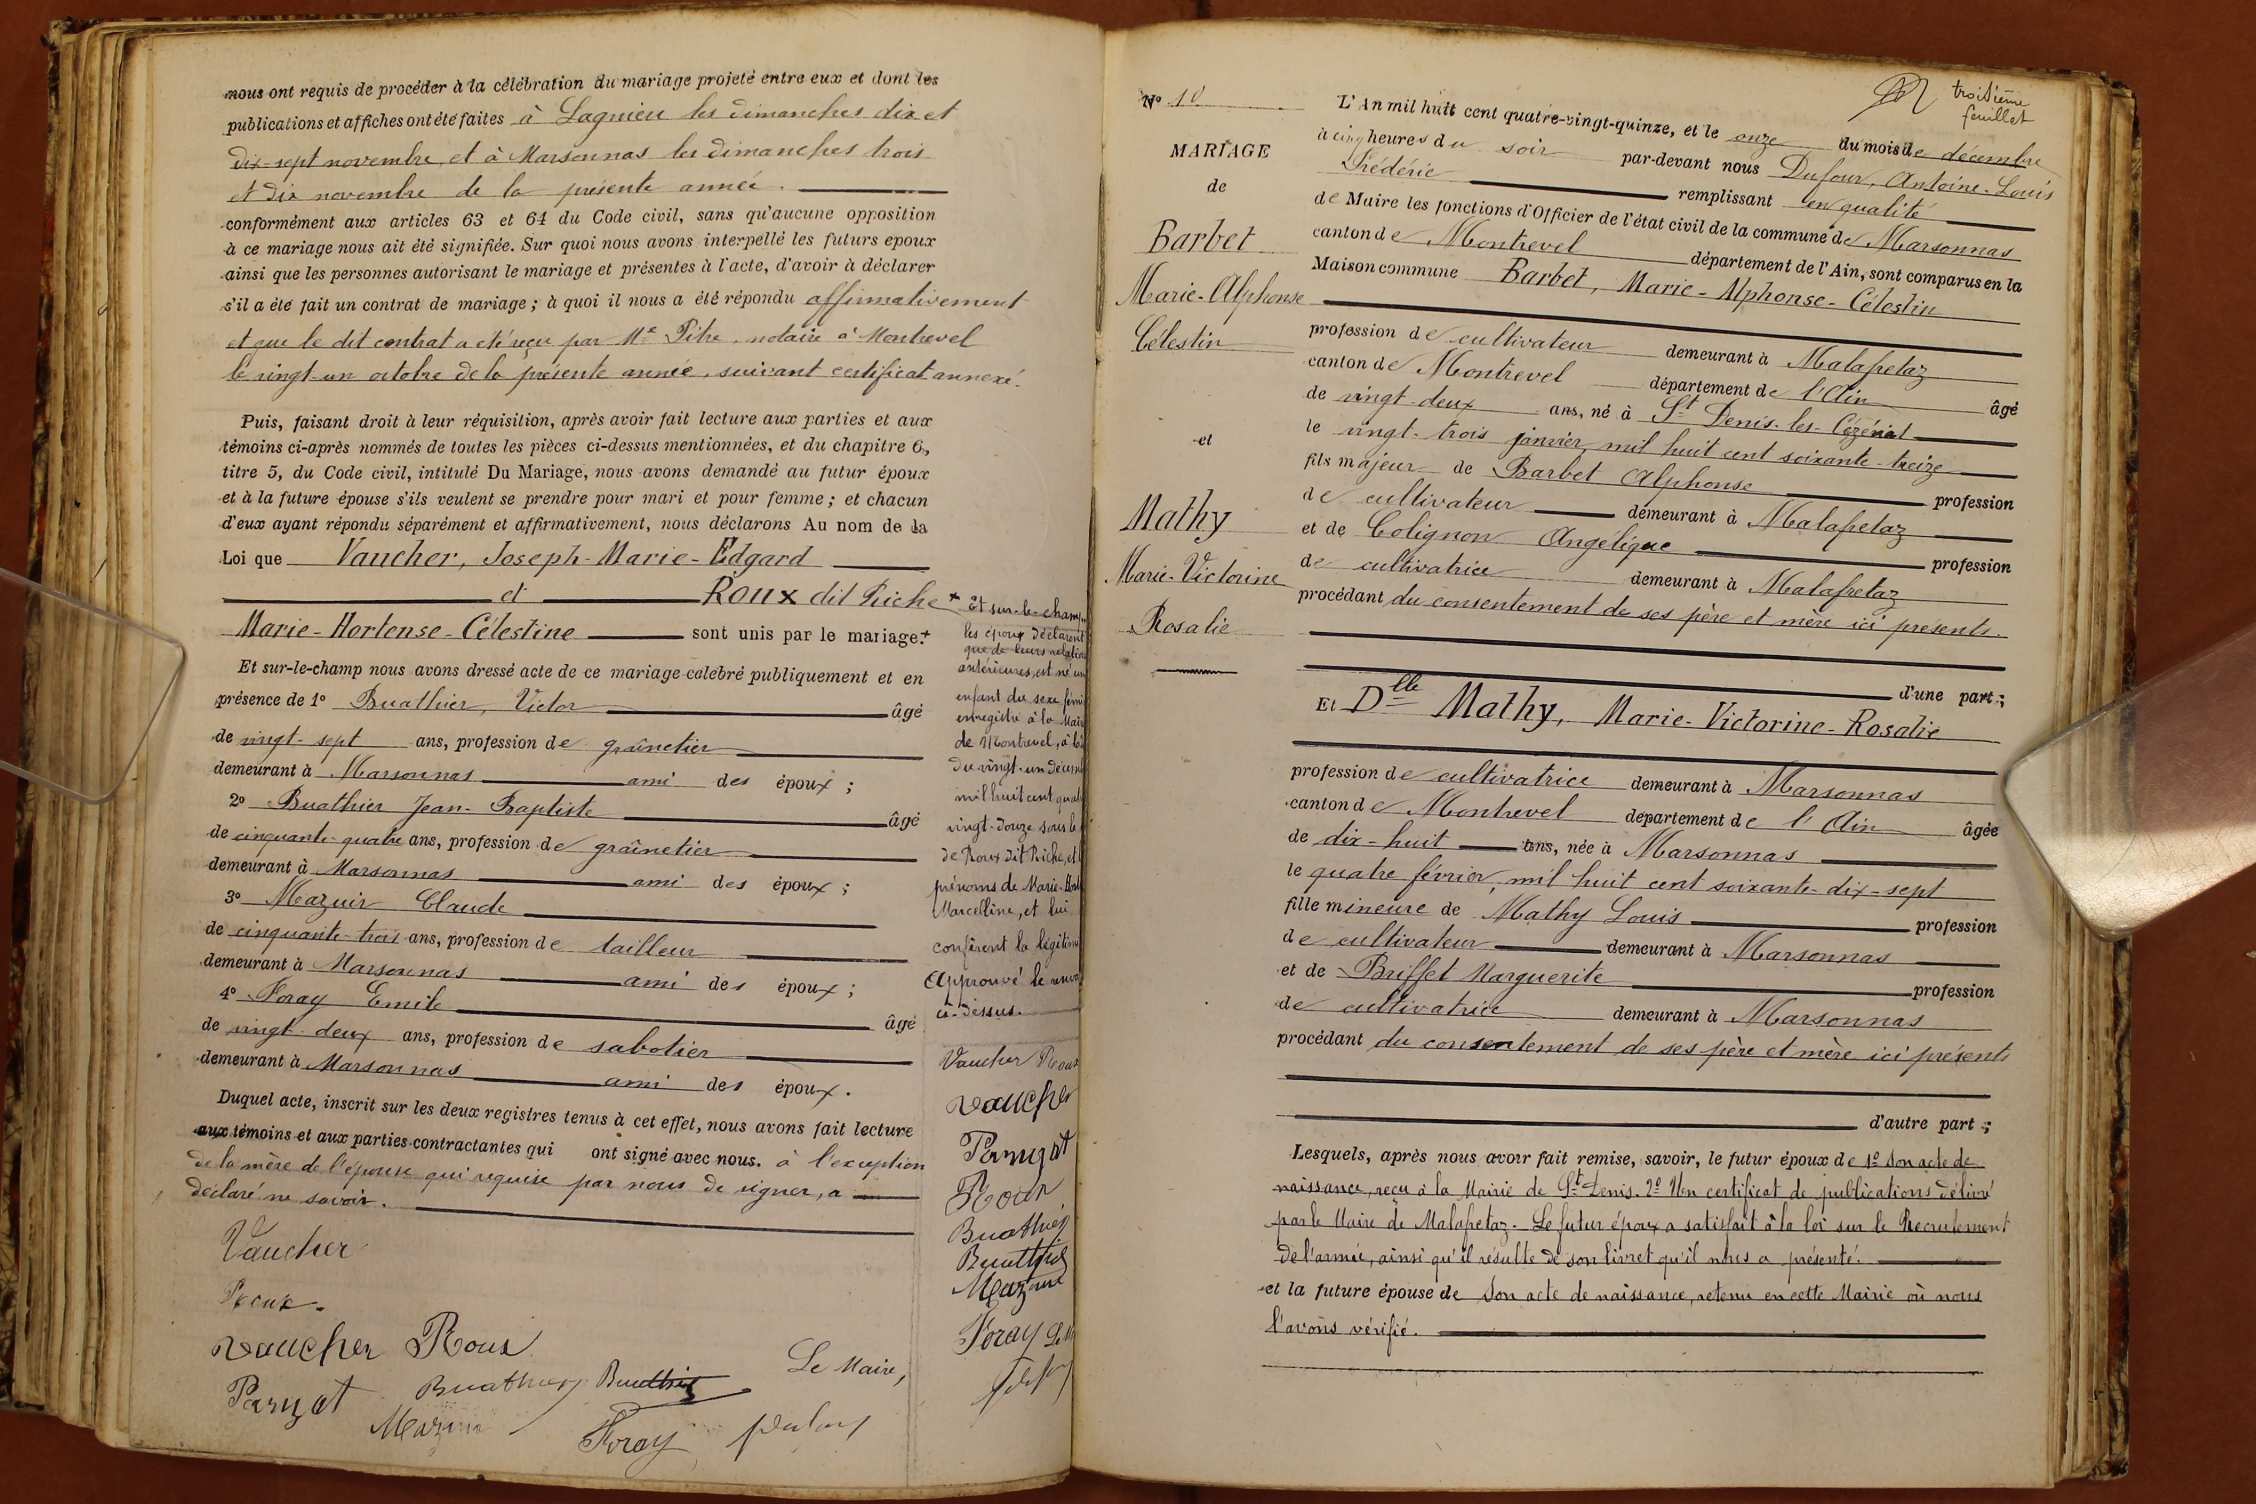 nous ont requis de procéder à la célébration du mariage projeté entre eux et dont les
publications et affiches ont été faites à Lagnieu les dimanches dix et
dix-sept novembre, et à Marsonnas les dimanches trois
et dix novembre de la présente année.
conformément aux articles 63 et 64 du Code civil, sans qu'aucune opposition
à ce mariage nous ait été signifiée. Sur quoi nous avons interpellé les futurs epoux
ainsi que les personnes autorisant le mariage et présentes à l'acte, d'avoir à déclarer
s'il a été fait un contrat de mariage ; à quoi il nous a été répondu affirmativement
et que le dit contrat a été reçu par Me Pitre, notaire à Montrevel
le vingt-un octobre de la présente année, suivant certificat annexé.
Puis, faisant droit à leur réquisition, après avoir fait lecture aux parties et aux
témoins ci-après nommés de toutes les pièces ci-dessus mentionnées, et du chapitre 6,
titre 5, du Code civil, intitulé Du Mariage, nous avons demandé au futur époux
et à la future épouse s'ils veulent se prendre pour mari et pour femme ; et chacun
d'eux ayant répondu séparément et affirmativement, nous déclarons Au nom de la
Loi que Vaucher, Joseph-Marie-Edgard
et Roux dit Riche
Marie-Hortense-Célestine sont unis par le mariage.+
Et sur-le-champ nous avons dressé acte de ce mariage célébré publiquement et en
présence de 1° Buathier, Victor âgé
de vingt-sept ans, profession de graînetier
demeurant à Marsonnas ami des époux ;
2° Buathier Jean-Baptiste âgé
de cinquante-quatre ans, profession de graînetier
demeurant à Marsonnas ami des époux ;
3° Mazuir Claude
de cinquante-trois ans, profession de tailleur
demeurant à Marsonnas ami des époux ;
4° Foray Emile âgé
de vingt-deux ans, profession de sabotier
demeurant à Marsonnas ami des époux.
Duquel acte, inscrit sur les deux registres tenus à cet effet, nous avons fait lecture
aux témoins et aux parties contractantes qui ont signé avec nous. à l'exception
de la mère de l'épouse qui requise par nous de signer, a
déclaré ne savoir.
Vaucher
Roux
Vaucher Roux
Buathier Buathier Le Maire,
Mazuir Foray Dufour
+ Et sur-le-champ
les époux déclarent
que de leurs relations
antérieures, est né un
enfant du sexe fémi
enregistré à la Mair
de Montrevel, à la
du vingt-un décem
mil huit cent quat
vingt-douze sous le
de Roux dit Riche, et
prénoms de Marie-Hort
Marcelline, et lui
confèrent la légitim
Approuvé le renvoi
ci-dessus.
Vaucher Roux
Vaucher
Roux
Buathier
Buathier
Mazuir
Foray Le M
troisième
feuillet
N° 10
MARIAGE
de
Barbet
Marie-Alphonse
Célestin
et
Mathy
Marie-Victorine
Rosalie
L'An mil huit cent quatre-vingt-quinze, et le onze du mois de décembre
à cinq heures du soir par-devant nous Dufour, Antoine-Louis
Frédéric remplissant en qualité
de Maire les fonctions d'Officier de l'état civil de la commune de Marsonnas
canton de Montrevel département de l'Ain, sont comparus en la
Maison commune Barbet, Marie-Alphonse-Célestin
profession de cultivateur demeurant à Malafretaz
canton de Montrevel département de l'Ain âgé
de vingt-deux ans, né à St Denis-les-Cézériat
le vingt-trois janvier mil huit cent soixante-treize
fils majeur de Barbet Alphonse profession
de cultivateur demeurant à Malafretaz
et de Colignon Angélique profession
de cultivatrice demeurant à Malafretaz
procédant du consentement de ses père et mère ici présents.
d'une part ;
Et Dlle Mathy, Marie-Victorine-Rosalie
profession de cultivatrice demeurant à Marsonnas
canton de Montrevel département de l'Ain âgée
de dix-huit ans, née à Marsonnas
le quatre février, mil huit cent soixante-dix-sept
fille mineure de Mathy Louis profession
de cultivateur demeurant à Marsonnas
et de Briffet Marguerite profession
de cultivatrice demeurant à Marsonnas
procédant du consentement de ses père et mère ici présents
d'autre part ;
Lesquels, après nous avoir fait remise, savoir, le futur époux de 1° son acte de
naissance, reçu à la Mairie de St Denis. 2° Un certificat de publications délivré
par le Maire de Malafretaz. Le futur époux a satisfait à la loi sur le Recrutement
de l'armée, ainsi qu'il résulte de son livret qu'il nous a présenté.
et la future épouse de son acte de naissance, retenu en cette Mairie où nous
l'avons vérifié.